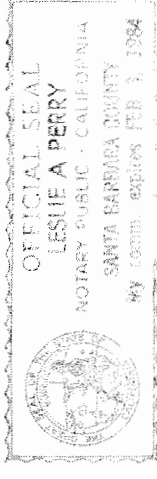 OFFICIAL SEAL
LESLIE A PERRY
NOTARY PUBLIC - CALIFORNIA
SANTA BARBARA COUNTY
My comm. expires FEB 3, 1984